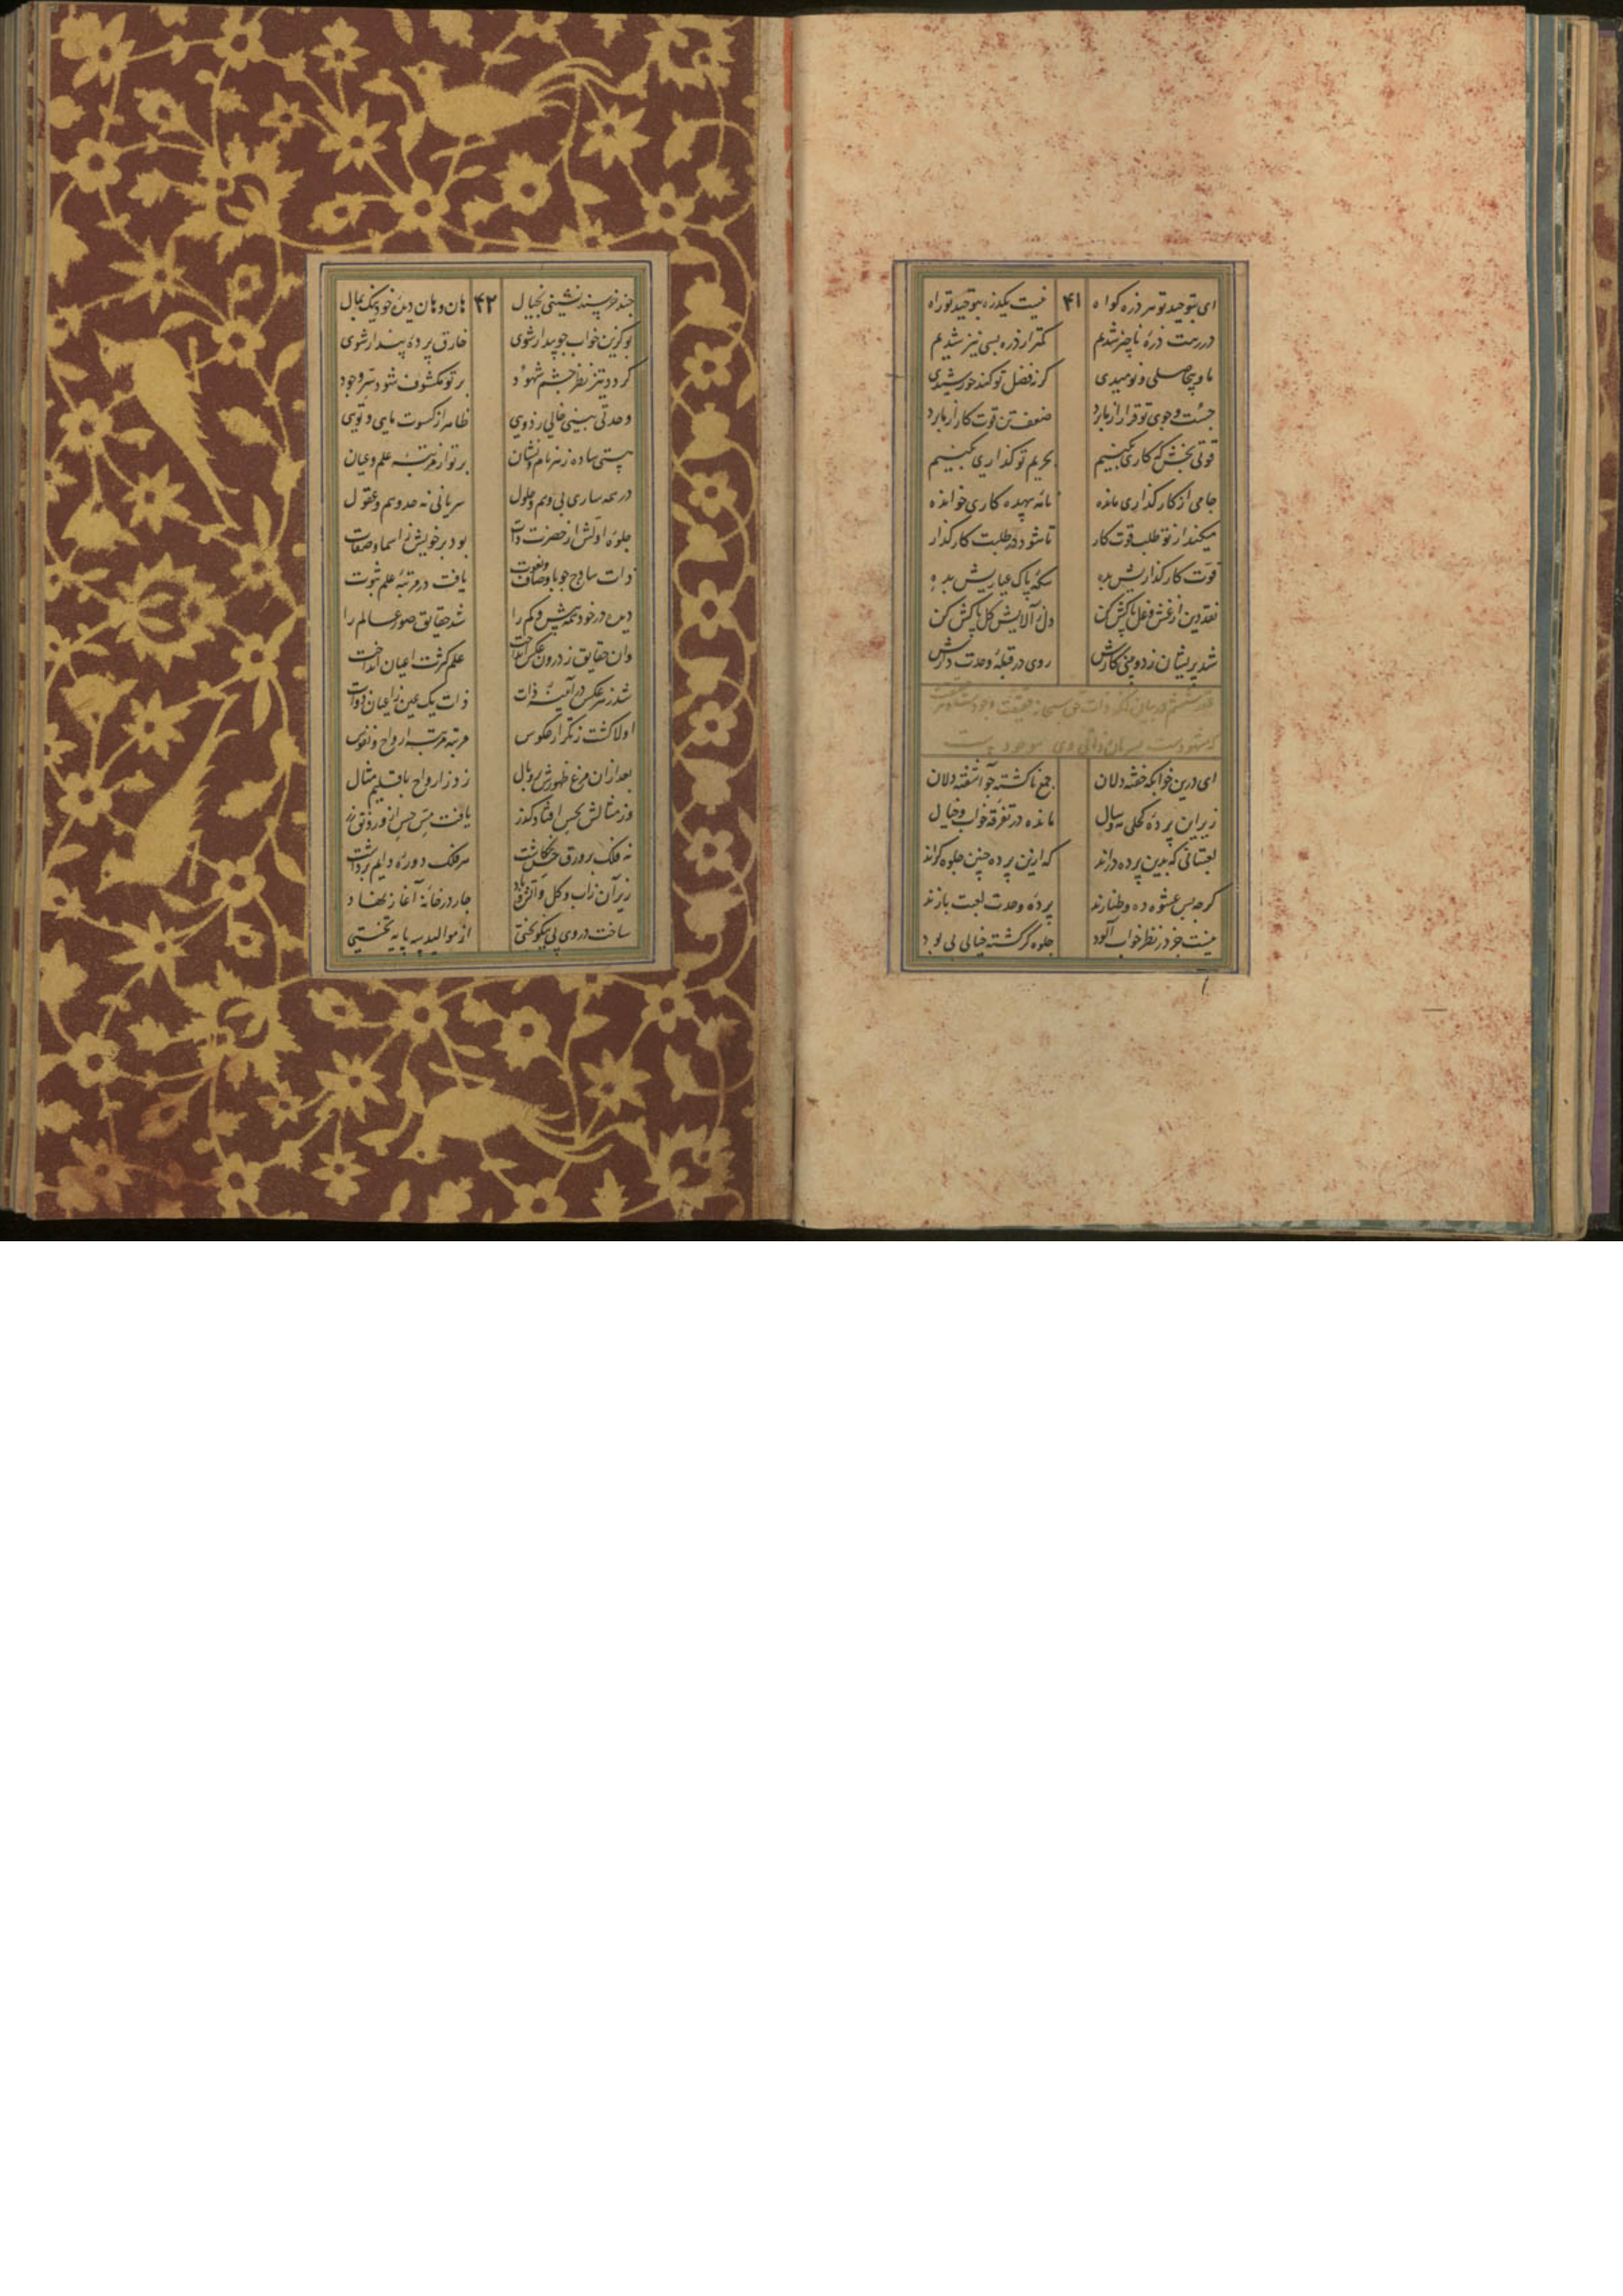 ای بتوحید تو هر ذره کواه ۴۱ نیست یکذره بتوحید تو راه
در رهت ذرهٔ ناچیز شدیم کمتر از ذره بسی نیز شدیم
ما و بیحاصلی و نومیدی کر نه فضل تو کند خورشیدی
جست و جوی تو قرار از ما برد ضعف تن قوت کار از ما برد
قوتی بخش که کاری بکنیم بحریم تو کذاری بکنیم
جامی از کار کذاری مانده نامهٔ بیهده کاری خوانده
میکند از تو طلب قوت کار تا شود در طلبت کار کذار
قوت کار کذاریش بده سکهٔ پاک عیاریش بده
نقد دین از غش و غل پاکش کن دل ز آلایش کل پاکش کن
شد پریشان ز دو بینی کارش روی در قبلهٔ وحدت دارش
در بیان آنکه ذات حق سبحانه حقیقت وجودست و هر
که مشهودست بسریان ذاتی وی موجود
ای درین خوابکه خفته دلان جمع ناکشته چو آشفته دلان
زیر این پردهٔ کحلی مه و سال مانده در تفرقهٔ خواب و خیال
لعبتانی که بدین پرده درند که ازین پرده چنین جلوه کرند
کرچه بس عشوه ده و طنازند پردهٔ وحدت لعبت بازند
نیست جز در نظر خواب آلود جلوه کر کشته خیالی بی بود
چند خرسند نشینی بخیال ۴۲ هان و هان دیدهٔ خود نیک بمال
بو کزین خواب چو بیدار شوی خارق پردهٔ پندار شوی
کردد تیز نظر چشم شهود بر تو مکشوف شود سر وجود
وحدتی بینی خالی ز دویی ظاهر از کسوت مایی و تویی
هستی ساده ز هر نام و نشان بر تو از مرتبهٔ علم و عیان
در همه ساری بی وهم و حلول سریانی نه حد وهم و عقول
جلوهٔ اولش از حضرت ذات بود بر خویش ز اسما و صفات
ذات ساذج چو باوصاف و نعوت یافت در مرتبهٔ علم ثبوت
دید در خود همه بیش و کم را شد حقایق صور عالم را
وان حقایق ز درون عکس انداخت علم کثرت اعیان انداخت
شد ز هر عکس در آیینهٔ ذات ذات یک عین ز اعیان ذوات
اولا کشت ز تکرار عکوس مرتبه مرتبه ارواح و نفوس
بعد ازان مرغ ظهورش پر و بال زد ز ارواح باقلیم مثال
وز مثالش بحس افتاد کذر یافت مس حس ازو رونق زر
نه فلک بر ورق حس بنکاشت هر فلک دورهٔ دایم برداشت
زیر آن ز آب و کل و آتش و باد چار در خانهٔ آغاز نهاد
ساخت در وی پی نیکو بختی از موالید سه پایه تختی